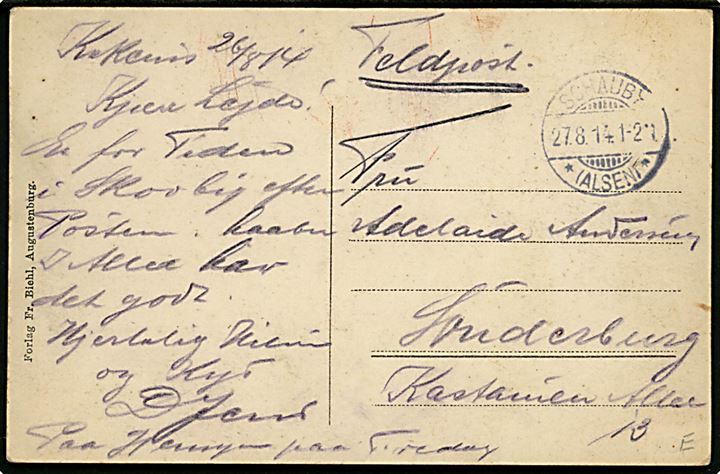 Kekenis 26/8 14
Kjære Lejde!
Er for Tiden
i Skovby efter
Posten. haaber
I Alle har
det godt.
Hjertelig Hilsen
og Kys
D Jens
Paa paa Fredag
Feldpost.
Fru
Adelaide Andersen
Sonderburg
Kastanien Allee
13
SCHAUBY
27.8.14.1-2N.
* (ALSEN) *
Forlag Fr. Biehl, Augustenburg.
E